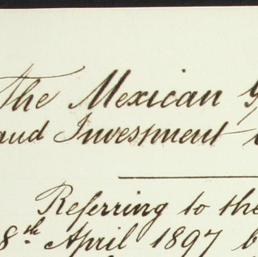 The Mexican
and Investment
Referring to the
8th April 1897